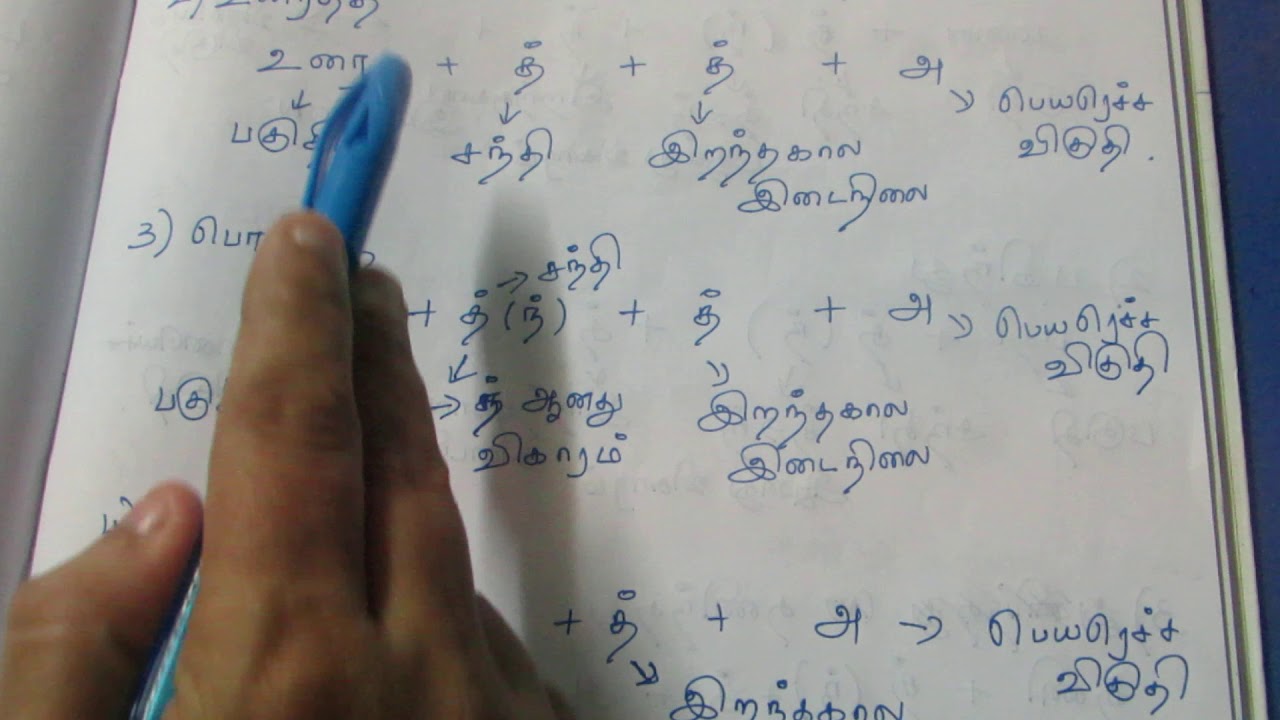 உரை + த் + த் + அ → பெயரெச்ச
பகுதி சந்தி இறந்தகால விகுதி.
இடைநிலை
3) பொ
→ சந்தி
+ த் (ந்) + த் + அ → பெயரெச்ச
விகுதி
பகு → ந் ஆனது இறந்தகால
விகாரம் இடைநிலை
+ த் + அ → பெயரெச்ச
விகுதி
இறந்தகால